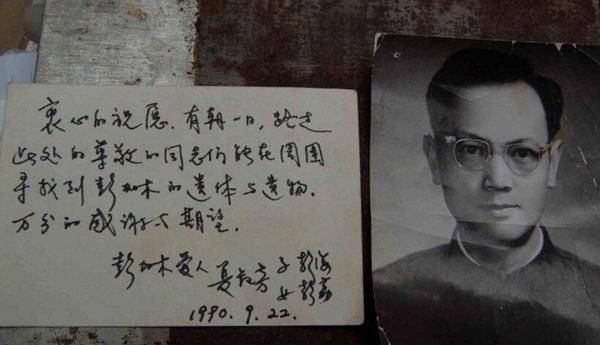 衷心的祝愿，有朝一日，路过
此处的尊敬的同志们能在周围
寻找到彭加木的遗体与遗物．
万分的感谢与期望．
彭加木爱人 夏叔芳 子 彭海
女 彭荔
1990．9．22．